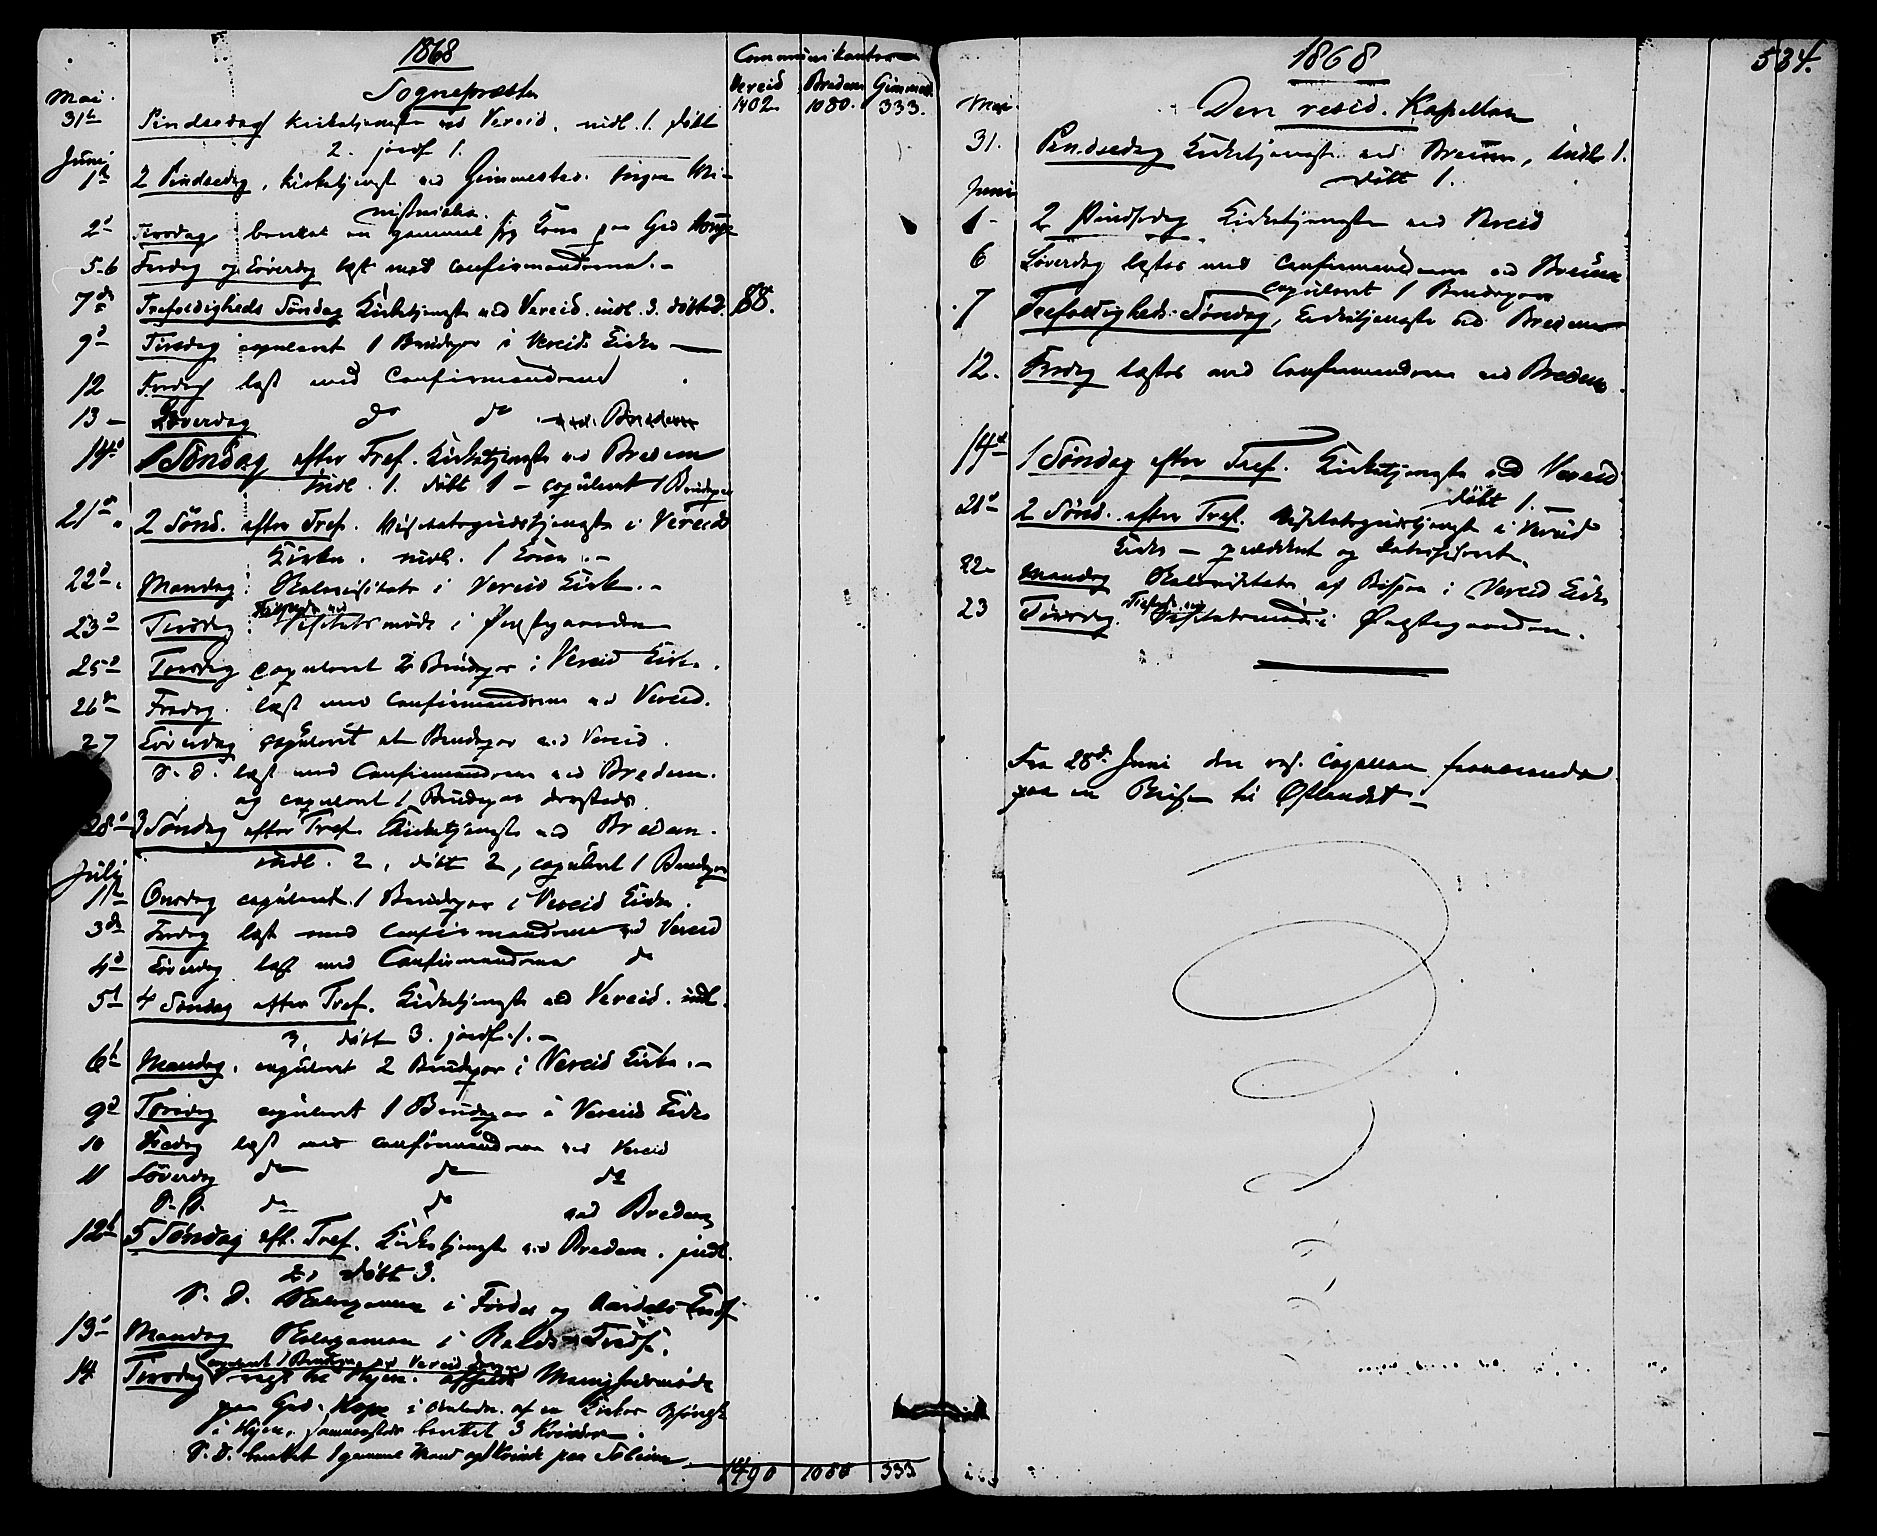 1868
Communikanter
Sognepræsten
Vereid Bredem Gimmest.
1402. 1080. 333.
Mai
31te Pindsedag Kirketjeneste ved Vereid, indl. 1. døbt
2. jordf. 1.
Juni
1te 2 Pindsedag, Kirketjenst ved Gimmestad. ingen Mi-
nisterialia.
2d Tirsdag berettet en gammel syg Kone paa Grd Houge
5-6 Fredag og Løverdag læst med Confirmanderne.-
7de Trefoldigheds Søndag Kirketjeneste ved Vereid. indl. 3. døbt 2. 88.
9d Tirsdag copuleret 1 Brudepar i Vereids Kirke —
12 Fredag læst med Confirmanderne
13 – Løverdag do do ved Bredem
14d 1 Søndag efter Tref. Kirketjeneste ved Bredem
indl. 1. døbt 1 – copuleret 1 Brudepar
21de 2 Sønd. efter Tref. Visitatsgudstjeneste i Vereids
Kirke. indl. 1 Kone.-
22d. Mandag i Vereid Kirke.-
23d Tirsdag Visitatsmøde i Præstegaarden
25d Torsdag copuleret 2 Brudepar i Vereid Kirke.
26de Fredag. læst med Confirmanderne ved Vereid.
27 Løverdag copuleret et Brudepar ved Vereid.
S. D. læst med Confirmanderne ved Bredem.
og copuleret 1 Brudepar dersteds
28d 3 Søndag efter Tref. Kirketjeneste ved Bredem.
indl. 2, døbt 2, copuleret 1 Brudepar
July
1te Onsdag copuleret 1 Brudepar i Vereid Kirke.
3de Fredag læst med Confirmanderne ved Vereid
4d Løverdag læst med Confirmanderne do
5t 4 Søndag efter Tref. Kirketjeneste ved Vereid. indl.
3, døbt 3. jordf. 1.-
6t Mandag. copuleret 2 Brudepar i Vereid Kirke.-
9d Torsdag copuleret 1 Brudepar i Vereid Kirke
10 Fredag læst med Confirmanderne ved Vereid
11 Løverdag do do do
S. D. do do ved Bredem
12t 5 Søndag eft. Tref. Kirketjeneste ved Bredem. indl.
2, døbt 3.
S. D. i Førde og Aardals
13d Mandag i
copuleret 1 Brudepar ved Vereid
14 Tirsdag til Hyen. afholdt
paa Grd. Hope i af en Kirkes
i Hyen, sammesteds berettet 3 Kvinder.
S. D. berettet 1 gammel Mand og Kvinde paa
1490 1080 333
1868
534.
Den resid. Kapellan
Mai
31. Pindsedag Kirketjeneste ved Bredem, indl. 1.
døbt 1.
Juni
1- 2 Pindsedag Kirketjeneste ved Vereid
6 Løverdag læstes med Confirmanderne ved Bredem
copuleret 1 Brudepar
7 Trefoldigheds-Søndag, Kirketjeneste ved Bredem
12. Fredag læstes med Confirmanderne ved Bredem.
14d 1 Søndag efter Tref. Kirketjeneste ved Vereid
døbt 1.-
21d 2 Sønd. efter Tref. Visitatsgudstjenest i Vereid
Kirke – prædiket og katechiseret.
22- Mandag af Bispen i Vereid Kirke
23 Tirsdag. Visitatsmøde i Præstegaarden.
Fra 28d Juni den res. Capellan fraværende
paa en Reise til Østlandet –